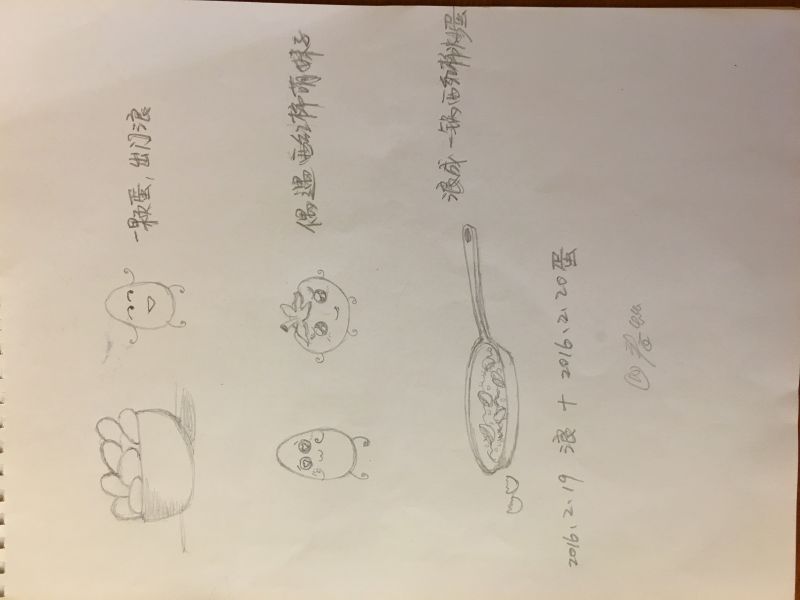 一颗蛋，出门浪
偶遇西红柿萌妹子
浪成一锅西红柿炒蛋
2016.2.19 浪 + 2016.2.20 蛋